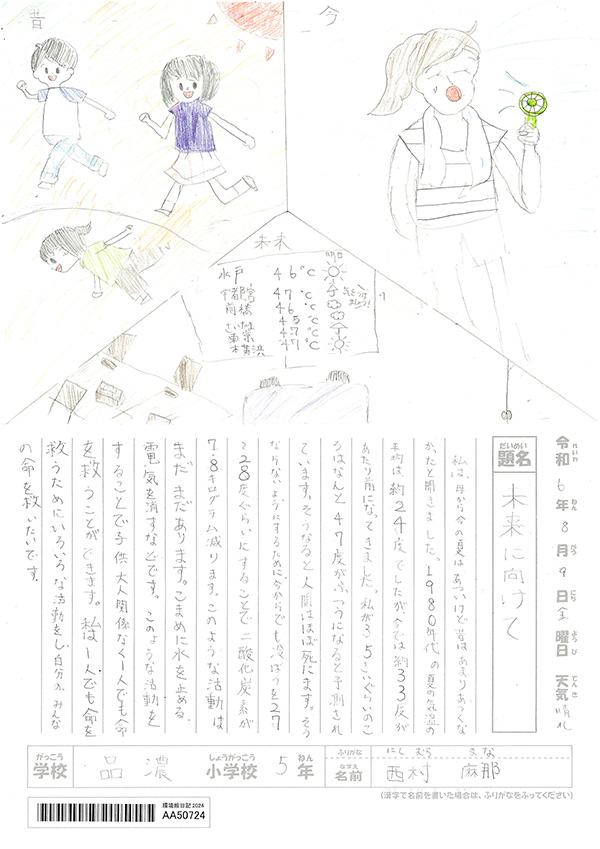 昔
今
未来
明日
水戸 46℃
宇都宮 47℃
前橋 46℃
さいたま 45℃
東京 47℃
横浜 47℃
令和 6年 8月 9日 金曜日 天気 晴れ
れいわ ねん がつ にち よう び てんき
だいめい
題名
未来に向けて
私は、母から今の夏はあついけど昔はあまりあつくな
かったと聞きました。1980年代の夏の気温の
平均は約24度でしたが今では約33度が
あたり前になってきました。私が35さいぐらいのこ
ろはなんと47度がふつうになると予測され
ています。そうなると人間はほぼ死にます。そう
ならないようにするために、今からでも冷ぼうを27
〜28度ぐらいにすることで二酸化炭素が
7.8キログラム減ります。このような活動は
まだまだあります。こまめに水を止める、
電気を消すなどです。このような活動を
することで子供大人関係なく一人でも命
を救うことができます。私は一人でも命を
救うためにいろいろな活動をし、自分や、みんな
の命を救いたいです。
がっこう しょうがっこう ねん ふりがな にし むら ま な
学校 品濃 小学校 5年 なまえ 名前 西村 麻那
(漢字で名前を書いた場合は、ふりがなをふってください)
環境絵日記2024
AA50724